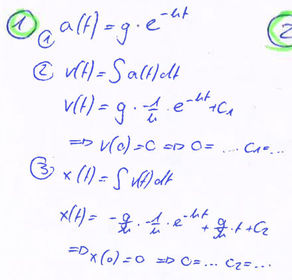 1 ① a(t) = g · e^-kt 2
② v(t) = ∫ a(t) dt
v(t) = g · -1/k · e^-kt + C₁
⇒ v(0) = 0 ⇒ 0 = ... C₁ = ...
③ x(t) = ∫ v(t) dt
x(t) = -g/k · -1/k · e^-kt + g/k · t + C₂
⇒ x(0) = 0 ⇒ 0 = ... C₂ = ...